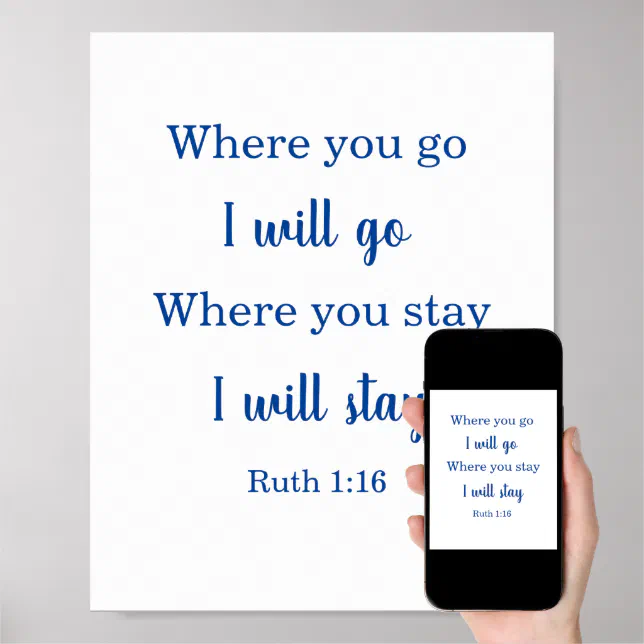 Where you go
I will go
Where you stay
I will stay
Ruth 1:16
Where you go
I will go
Where you stay
I will stay
Ruth 1:16